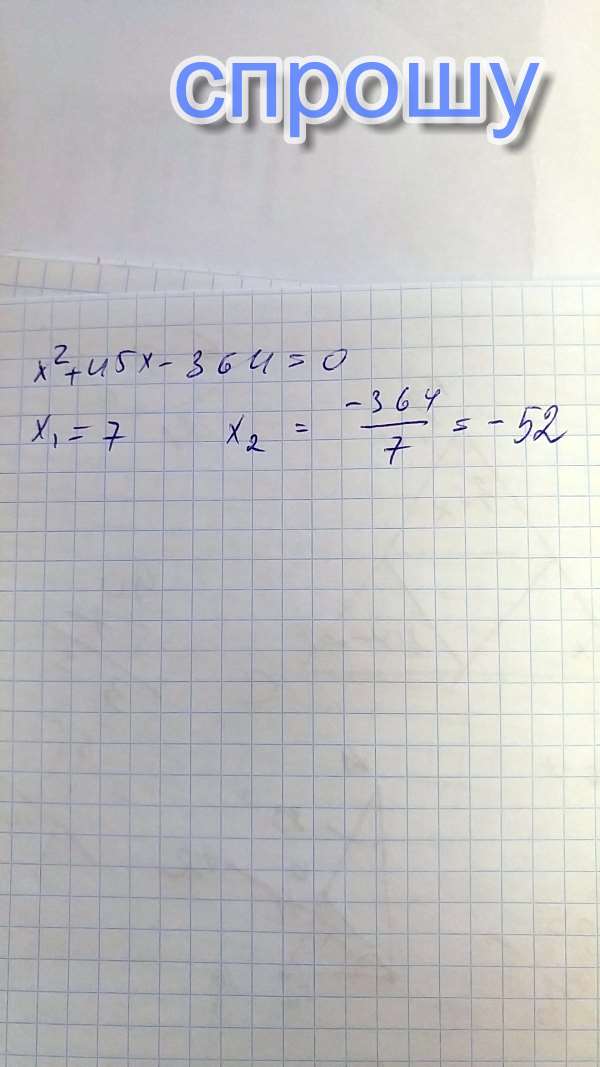 спрошу
x²+45x-364=0
x₁=7 x₂ = -364/7 = -52